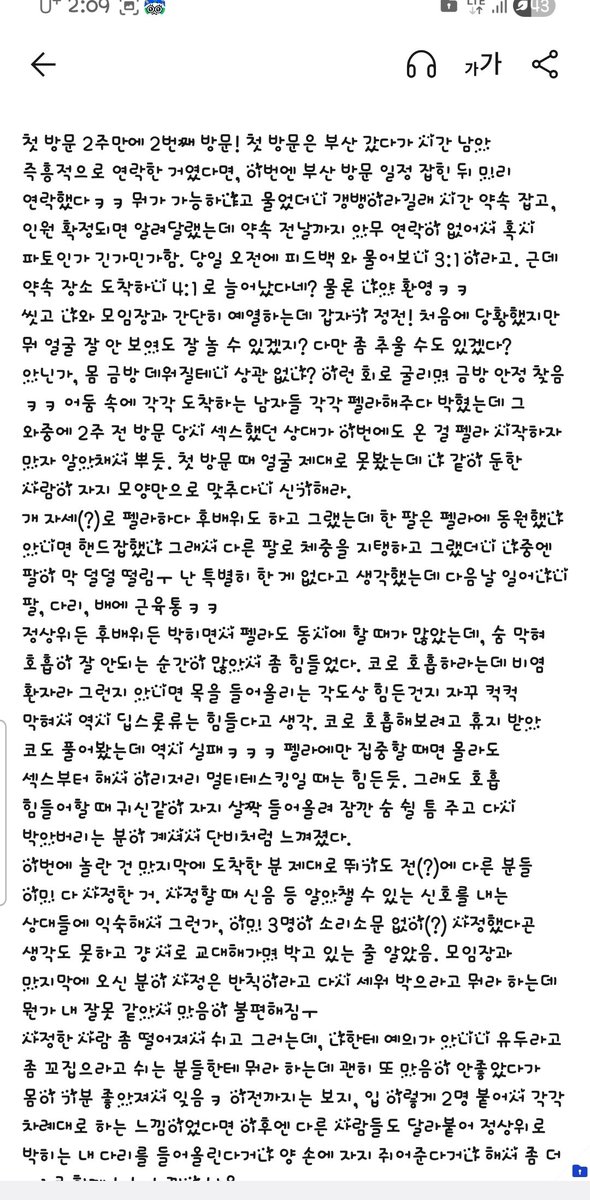 2:09 43
가가
첫 방문 2주만에 2번째 방문! 첫 방문은 부산 갔다가 시간 남아
즉흥적으로 연락한 거였다면, 이번엔 부산 방문 일정 잡힌 뒤 미리
연락했다ㅋㅋ 뭐가 가능하냐고 물었더니 갱뱅이라길래 시간 약속 잡고,
인원 확정되면 알려달랬는데 약속 전날까지 아무 연락이 없어서 혹시
파토인가 긴가민가함. 당일 오전에 피드백 와 물어보니 3:1이라고. 근데
약속 장소 도착하니 4:1로 늘어났다네? 물론 나야 환영ㅋㅋ
씻고 나와 모임장과 간단히 예열하는데 갑자기 정전! 처음에 당황했지만
뭐 얼굴 잘 안 보여도 잘 놀 수 있겠지? 다만 좀 추울 수도 있겠다?
아닌가, 몸 금방 데워질테니 상관 없나? 이런 회로 굴리며 금방 안정 찾음
ㅋㅋ 어둠 속에 각각 도착하는 남자들 각각 펠라해주다 박혔는데 그
와중에 2주 전 방문 당시 섹스했던 상대가 이번에도 온 걸 펠라 시작하자
마자 알아채서 뿌듯. 첫 방문 때 얼굴 제대로 못봤는데 나 같이 둔한
사람이 자지 모양만으로 맞추다니 신기해라.
개 자세(?)로 펠라하다 후배위도 하고 그랬는데 한 팔은 펠라에 동원했나
아니면 핸드잡했나 그래서 다른 팔로 체중을 지탱하고 그랬더니 나중엔
팔이 막 덜덜 떨림ㅜ 난 특별히 한 게 없다고 생각했는데 다음날 일어나니
팔, 다리, 배에 근육통ㅋㅋ
정상위든 후배위든 박히면서 펠라도 동시에 할 때가 많았는데, 숨 막혀
호흡이 잘 안되는 순간이 많아서 좀 힘들었다. 코로 호흡하라는데 비염
환자라 그런지 아니면 목을 들어올리는 각도상 힘든건지 자꾸 컥컥
막혀서 역시 딥스롯류는 힘들다고 생각. 코로 호흡해보려고 휴지 받아
코도 풀어봤는데 역시 실패ㅋㅋㅋ 펠라에만 집중할 때면 몰라도
섹스부터 해서 이리저리 멀티테스킹일 때는 힘든듯. 그래도 호흡
힘들어할 때 귀신같이 자지 살짝 들어올려 잠깐 숨 쉴 틈 주고 다시
박아버리는 분이 계셔서 단비처럼 느껴졌다.
이번에 놀란 건 마지막에 도착한 분 제대로 뛰기도 전(?)에 다른 분들
이미 다 사정한 거. 사정할 때 신음 등 알아챌 수 있는 신호를 내는
상대들에 익숙해서 그런가, 이미 3명이 소리소문 없이(?) 사정했다곤
생각도 못하고 걍 서로 교대해가며 박고 있는 줄 알았음. 모임장과
마지막에 오신 분이 사정은 반칙이라고 다시 세워 박으라고 뭐라 하는데
뭔가 내 잘못 같아서 마음이 불편해짐ㅜ
사정한 사람 좀 떨어져서 쉬고 그러는데, 나한테 예의가 아니니 유두라고
좀 꼬집으라고 쉬는 분들한테 뭐라 하는데 괜히 또 마음이 안좋았다가
몸이 기분 좋아져서 잊음ㅋ 이전까지는 보지, 입 이렇게 2명 붙어서 각각
차례대로 하는 느낌이었다면 이후엔 다른 사람들도 달라붙어 정상위로
박히는 내 다리를 들어올린다거나 양 손에 자지 쥐어준다거나 해서 좀 더